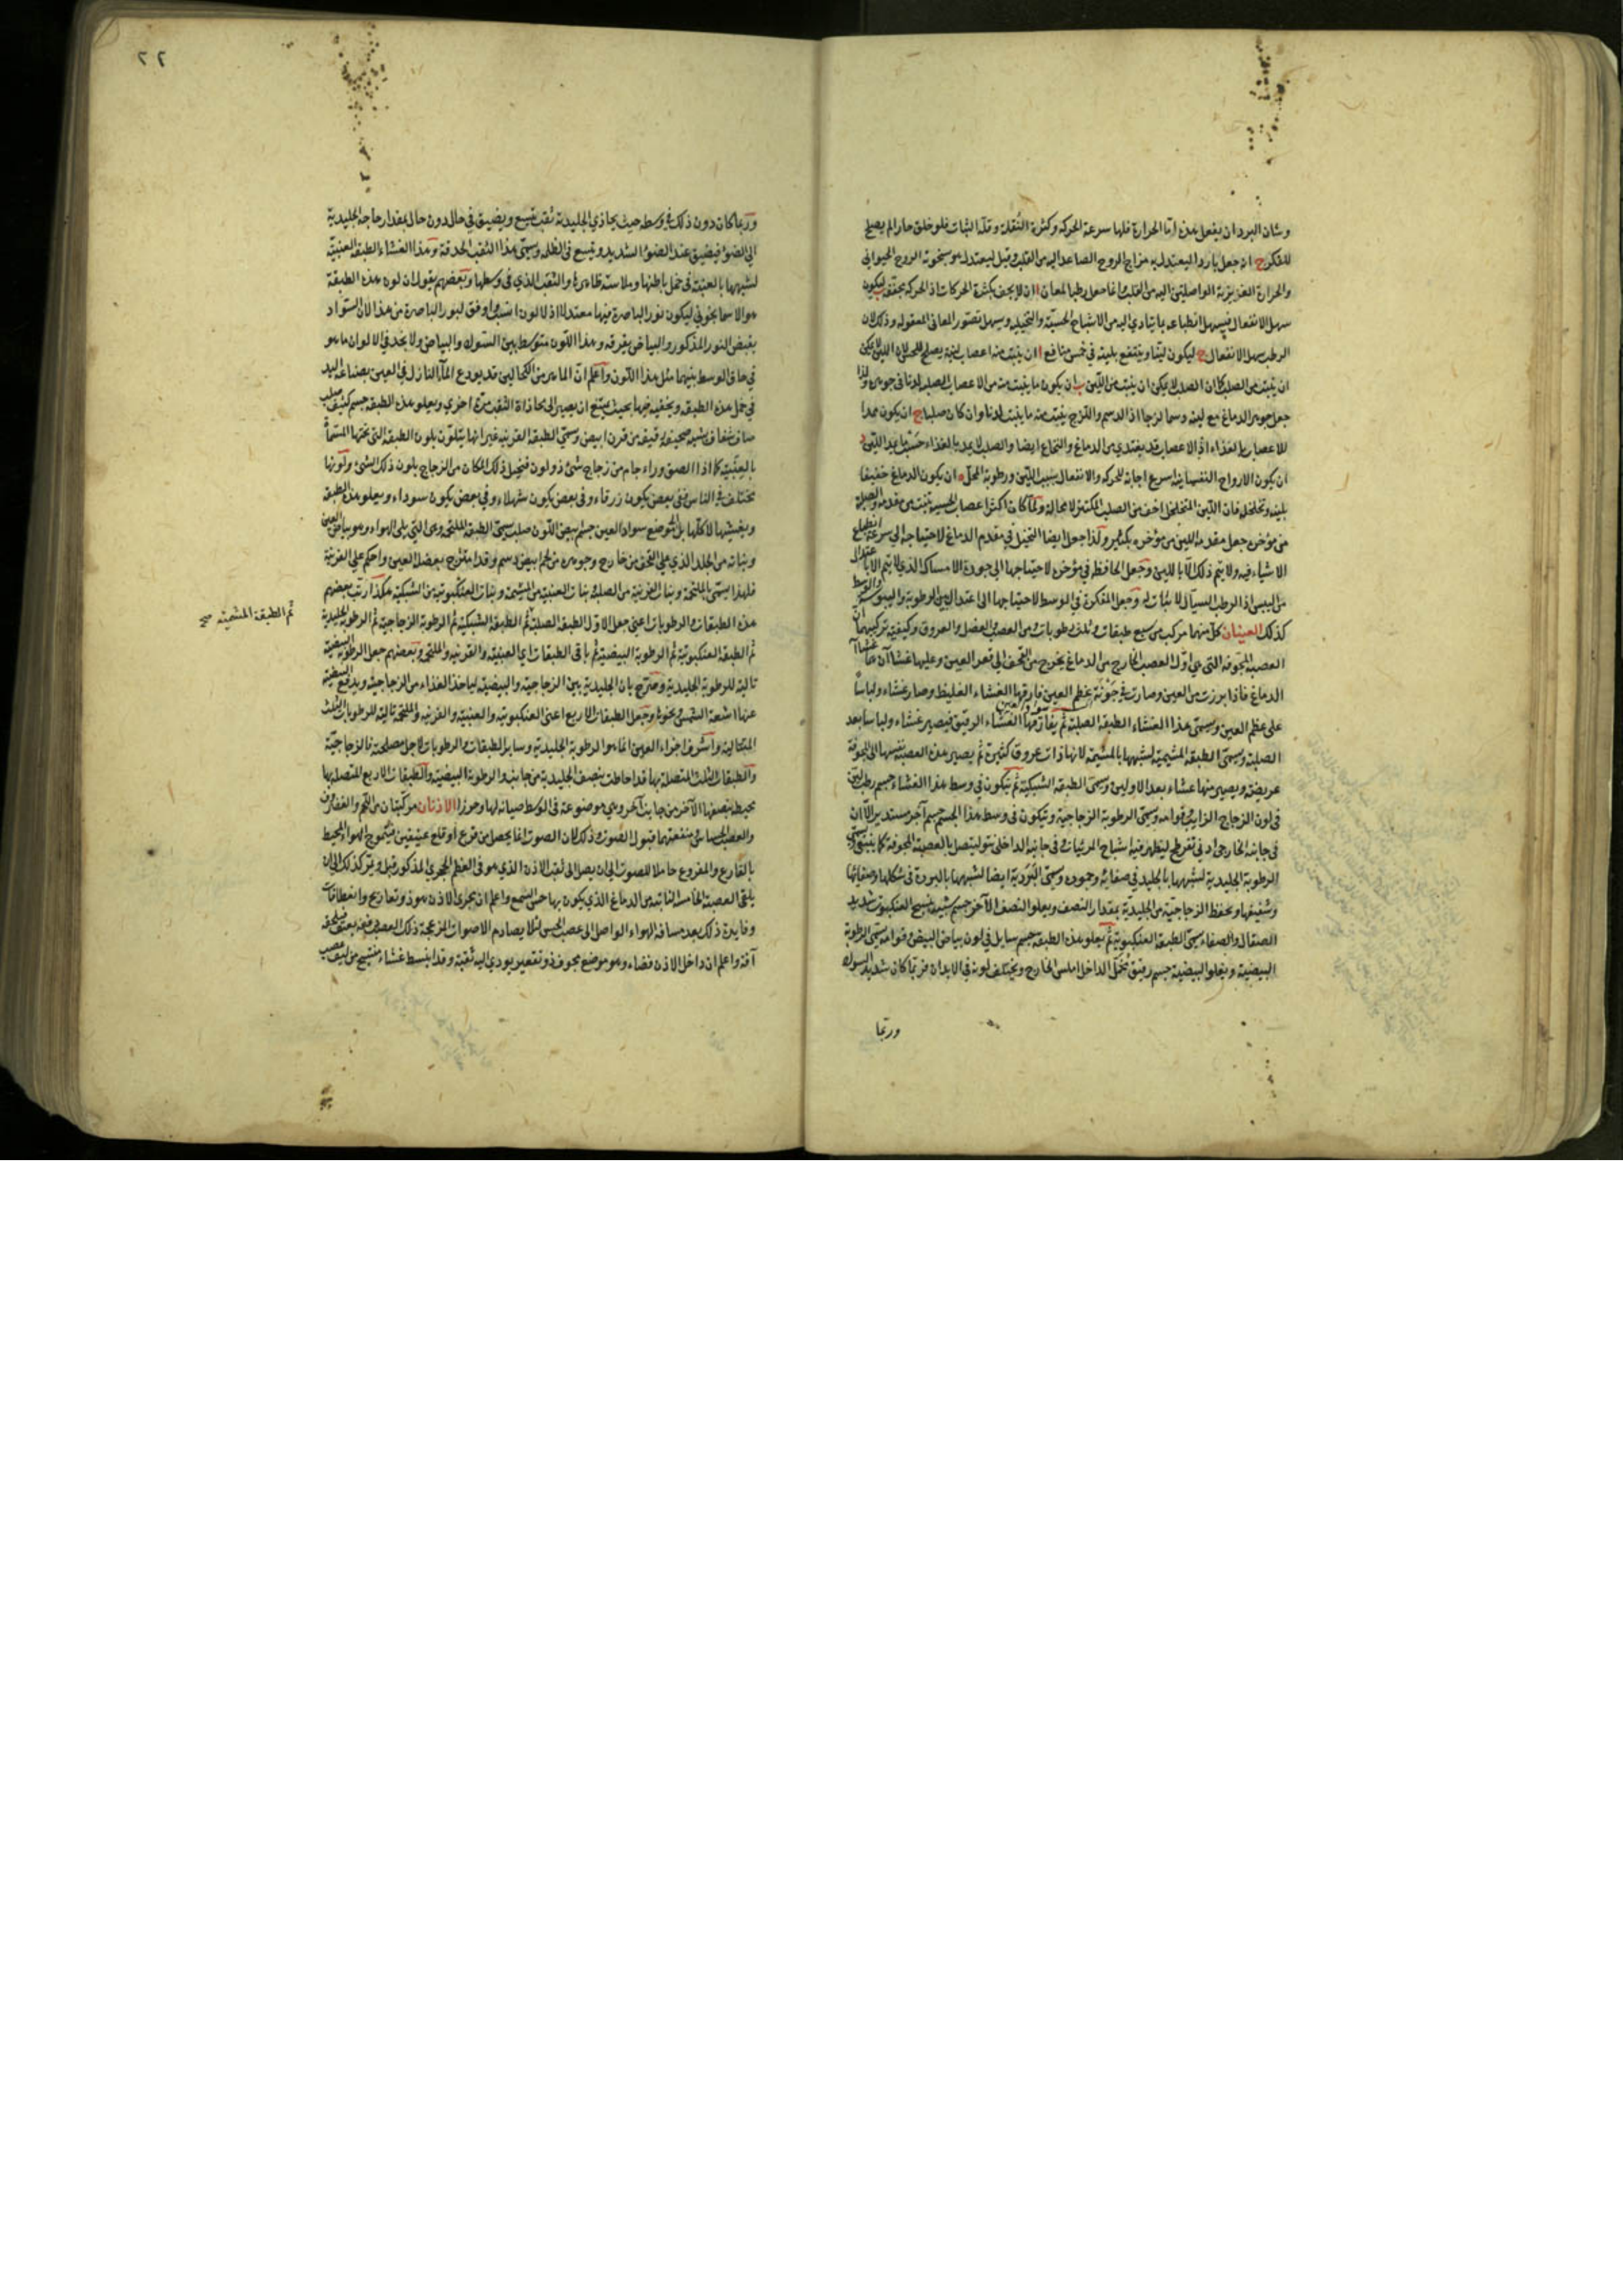 وشان البرد ان يفعل بهذه اما الحرارة فلها سرعة الحركة وكثرة النقلة وقلة الثبات فلو خلق حارا لم يصلح
للفكر ان جعل باردا ليعتدل به مزاج الروح الصاعد اليه من القلب وقيل ليعتدل به سخونة الروح الحيواني
والحرارة الغريزية الواصلتين اليه من القلب وانما جعل رطبا لمعان ا ان لا يجف بكثرة الحركات اذ الحركة مجففة ب ليكون
سهل الانفعال فيسهل انطباعه بما يتادي اليه من الاشباح الحسية والتخيلية ويسهل تصور المعاني المعقولة وذلك لان
الرطب سهل الانفعال ج ليكون لينا وينتفع بلينه في خمس منافع ا ان ينبت منه اعصاب لينة يصلح للحس لان اللين لا يمكن
ان ينبت من الصلب كما ان الصلب لا يمكن ان ينبت من اللين ب ان يكون ما ينبت منه من الاعصاب الصلبة لدنا في جوهره ولذا
جعل جوهر الدماغ مع لينه دسما لزجا اذ الدسم واللزج ينبت منه ما ينبت لدنا وان كان صلبا ج ان يكون ممدا
للاعصاب بالغذاء اذ الاعصاب قد يغتذي من الدماغ والنخاع ايضا والصلب لا يمد بالغذاء حسب ما يمد اللين د
ان يكون الارواح النفسانية اسرع اجابة للحركة والانفعال بسبب اللين ورطوبة المحل ه ان يكون الدماغ خفيفا
بلينه وتخلخله فان اللين المتخلخل اخف من الصلب المكتنز لا محالة ولما كانت اكثر اعصاب الحسية تنبت من مقدمه والصلبة
من مؤخره جعل مقدمه الين من مؤخره بكثير ولذا جعل ايضا التخيل في مقدم الدماغ لاحتياجه الى سرعة انطباع
الاشياء فيه ولا يتم ذلك الا باللين وجعل الحافظة في مؤخره لاحتياجها الى جودة الامساك الذي لا يتم الا باعتدال
من اليبس اذ الرطب السيال لا ثبات له وجعل المفكرة في الوسط لاحتياجها الى اعتدال بين الرطوبة واليبوسة والوسط
كذلك العينان كل منهما مركب من سبع طبقات وثلث رطوبات ومن العصب والعضل والعروق وكيفية تركيبهما ان
العصبة المجوفة التي هي اول العصب الخارج من الدماغ يخرج من القحف الى قعر العين وعليها غشاان هما غشاا
الدماغ فاذا برزت من العين وصارت في جوبة عظم العين فارقها الغشاء الغليظ وصار غشاء ولباسا
على عظم العين ويسمى هذا الغشاء الطبقة الصلبة ثم يفارقها الغشاء الرقيق فيصير غشاء ولباسا بعد
الصلبة ويسمى الطبقة المشيمية لشبهها بالمشيمة لانها ذات عروق كثيرة ثم يصير هذه العصبة نفسها الى المجوفة
عريضة ويصير منها غشاء بعد الاولين ويسمى الطبقة الشبكية ثم يتكون في وسط هذا الغشاء جسم رطب لين
في لون الزجاج الذائب وقوامه ويسمى الرطوبة الزجاجية ويتكون في وسط هذا الجسم جسم آخر مستدير الا ان
في جانبه الخارجي ادنى تفرطح ليظهر فيه اشباح المرئيات وفي جانبه الداخل نتو ليتصل بالعصبة المجوفة كما ينبغي ويسمى
الرطوبة الجليدية لشبهها بالجليد في صفائه وجموده ويسمى البردية ايضا لشبهها بالبردة في شكلها وصفائها
وشفيفها ويحفظ الزجاجية من الجليدية بمقدار النصف ويعلو النصف الآخر جسم شبيه بنسج العنكبوت شديد
الصقال والصفاء يسمى الطبقة العنكبوتية ثم يعلو هذه الطبقة جسم سايل في لون بياض البيض وقوامه يسمى الرطوبة
البيضية ويعلو البيضية جسم رقيق مخمل الداخل املس الخارج ويختلف لونه في الابدان فربما كان شديد السواد
وربما
٢٢
وربما كان دون ذلك في وسطه حيث يحاذي الجليدية ثقب يتسع ويضيق في حال دون حال بمقدار حاجة الجليدية
الى الضوء فيضيق عند الضوء الشديد ويتسع في الظلمة ويسمى هذا الثقب الحدقة وهذا الغشاء الطبقة العنبية
لشبهها بالعنبة في خمل باطنها وملاسة ظاهرها والثقب الذي في وسطها وبعضهم يقول ان لون هذه الطبقة
هو الاسمانجوني ليكون نور الباصرة فيها معتدلا اذ لا لون انسب واوفق لنور الباصرة من هذا لان السواد
يقبض النور المذكور والبياض يفرقه وهذا اللون متوسط بين السواد والبياض ولا يجد في الالوان ما هو
في حاق الوسط بينهما مثل هذا اللون واعلم ان الماهر من الكحالين قد يودع الماء النازل في العين بصناعة اليد
في خمل هذه الطبقة ويخفيه فيها بحيث يمتنع ان يصير الى محاذاة الثقب مرة اخرى ويعلو هذه الطبقة جسم كثيف صلب
صاف شفاف شبيه بصحيفة رقيقة من قرن ابيض ويسمى الطبقة القرنية غير انها يتلون بلون الطبقة التي تحتها المسماة
بالعنبية كما اذا الصق وراء جام من زجاج شئ ذو لون فيتخيل ذلك المكان من الزجاج بلون ذلك الشئ ولونها
يختلف في الناس ففي بعض يكون زرقاء وفي بعض يكون شهلاء وفي بعض يكون سوداء ويعلو هذه الطبقة
ويغشيها لا كلها بل الى موضع سواد العين جسم ابيض اللون صلب يسمى الطبقة الملتحمة وهي التي يلي الهواء وهو بياض العين
ونباته من الجلد الذي على القحف من خارج وجوهره من لحم ابيض دسم وقد امتزج بعضل العين واحكم على القرنية
فلهذا يسمى بالملتحمة ونبات القرنية من الصلبة ونبات العنبية من المشيمة ونبات العنكبوتية من الشبكية هكذا رتب بعضهم
هذه الطبقات والرطوبات اعني جعل الاول الطبقة الصلبة ثم الطبقة الشبكية ثم الرطوبة الزجاجية ثم الرطوبة الجليدية
ثم الطبقة المشيمية صح
ثم الطبقة العنكبوتية ثم الرطوبة البيضية ثم باقي الطبقات اي العنبية والقرنية والملتحمة وبعضهم جعل الرطوبة البيضية
تالية للرطوبة الجليدية وصرح بان الجليدية بين الزجاجية والبيضية لياخذ الغذاء من الزجاجية ويدفع البيضية
عنها اشعة الشمس ونحوها وجعل الطبقات الاربع اعني العنكبوتية والعنبية والقرنية والملتحمة تالية للرطوبات الثلث
المتتالية واشرف اجزاء العين انما هو الرطوبة الجليدية وساير الطبقات والرطوبات لاجل مصلحته فالزجاجية
والطبقات الثلث المتصلة بها قد احاطت بنصف الجليدية من جانب والرطوبة البيضية والطبقات الاربع المتصلة بها
يحيط بنصفها الآخر من جانب آخر وهي موضوعة في الوسط صيانة لها وحرزا الاذنان مركبتان من اللحم والغضروف
والعصب الحساس ومنفعتهما قبول الصوت وذلك لان الصوت انما يحصل من قرع او قلع عنيفين فيتموج الهواء المحيط
بالقارع والمقروع حاملا للصوت الى ان يصل الى ثقب الاذن الذي هو في العظم الحجري المذكور قبل ويتحرك كذلك الى ان
يلقى العصبة الخامسة النابتة من الدماغ الذي يكون بها حس السمع واعلم ان مجرى الاذن هو ذو تعاريج وانعطافات
وفايدة ذلك بعد مسافة الهواء الواصل الى عصب الحس لئلا يصادم الاصوات المزعجة ذلك العصب دفعة بعنف فيلحقه
آفة واعلم ان داخل الاذن فضاء وهو موضع مجوف ذو تقعير يودي اليه ثقبة وقد انبسط غشاء منتسج من ليف عصب